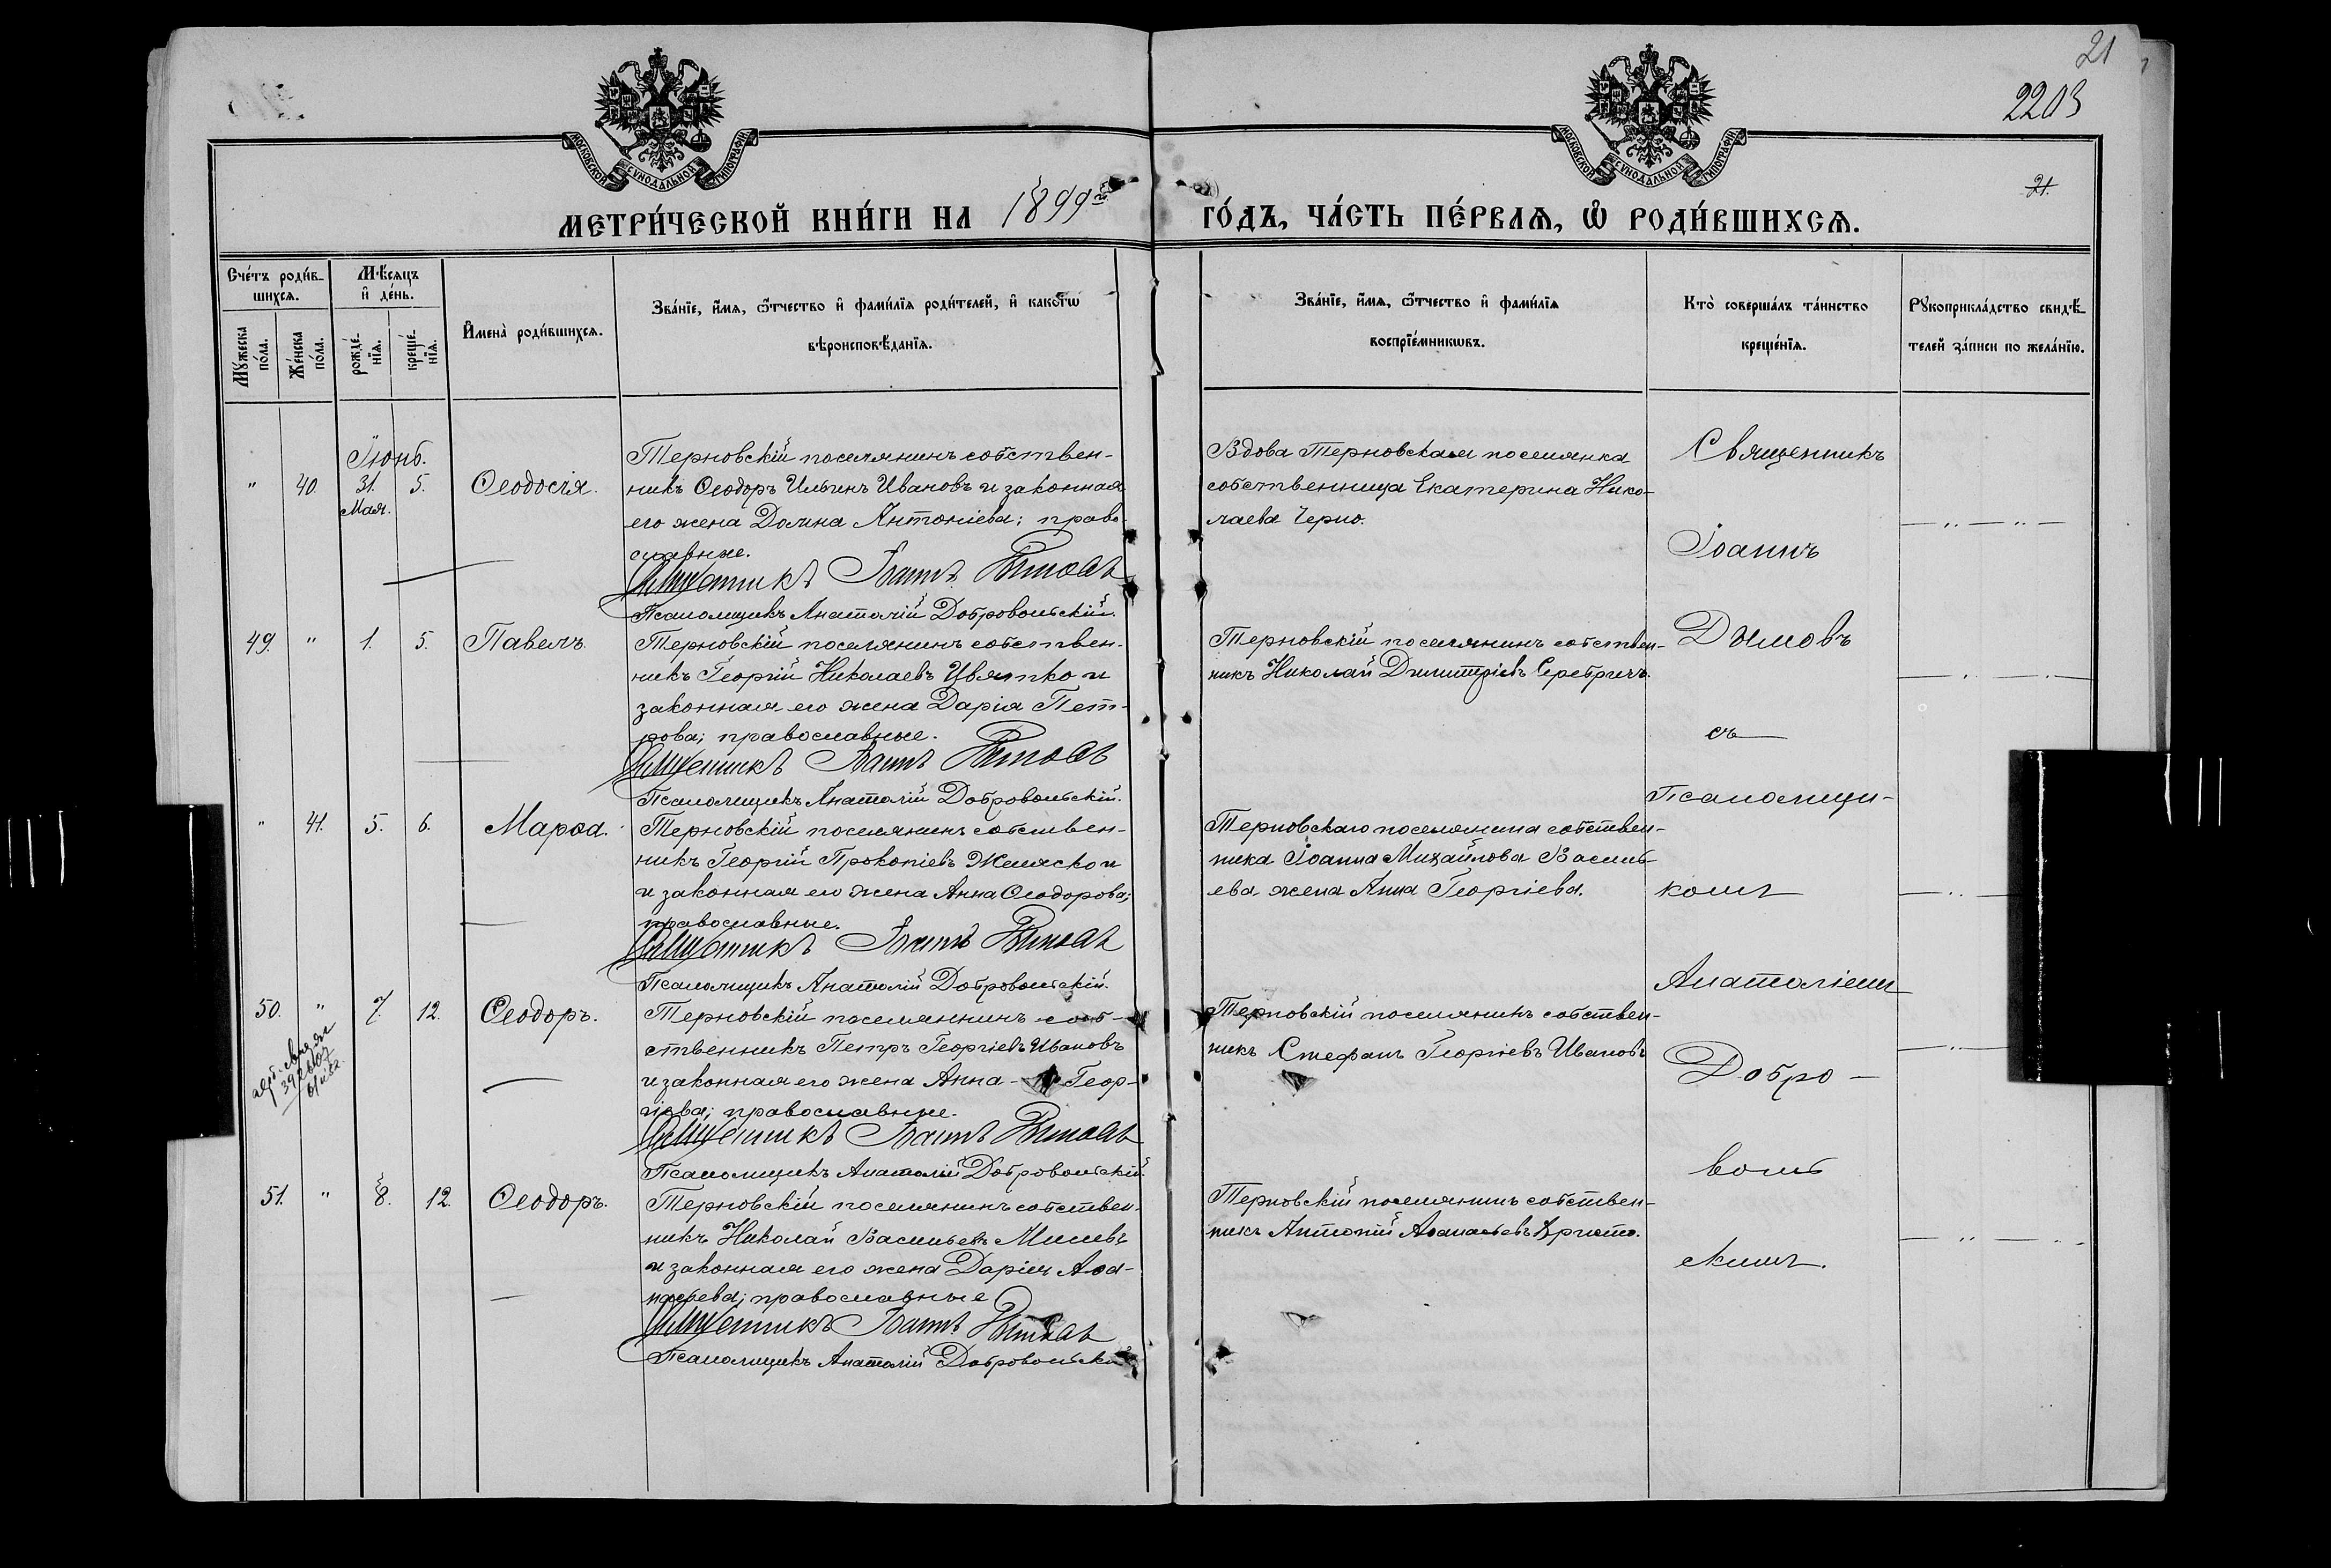 21
2203
21.
МОСКОВСКОЙ СѴНОДАЛЬНОЙ ТИПОГРАФІИ
МОСКОВСКОЙ СѴНОДАЛЬНОЙ ТИПОГРАФІИ
МЕТРИ́ЧЕСКОЙ КНИ́ГИ НА 1899 го́дъ, ЧА́СТЬ ПЕ́РВАѦ, Ѽ РОДИ́ВШИХСѦ.
Сче́тъ роди́в-
шихсѧ.
Мꙋ́жеска по́ла.
Же́нска по́ла.
Мѣ́сяцъ
и҆ де́нь.
рожде́-
нїѧ.
креще́-
нїѧ.
И҆мена̀ роди́вшихсѧ.
Зва́нїе, и҆́мѧ, ѻ҆́тчество и҆ фами́лїѧ роди́телей, и҆ како́гѡ
вѣроисповѣ́данїѧ.
Зва́нїе, и҆́мѧ, ѻ҆́тчество и҆ фами́лїѧ
воспрїе́мникѡвъ.
Кто̀ соверша́лъ та́инство
креще́нїѧ.
Рꙋкоприкла́дство свидѣ́-
телей за́писи по жела́нїю.
Іюнь.
" 40. 31. 5. Ѳеодосія.
Мая.
Терновскій поселянинъ собствен-
никъ Ѳеодоръ Ильинъ Ивановъ и законная
его жена Домна Антоніева; право-
славные.
Священникъ Іоаннъ Дымовъ
Псаломщикъ Анатолій Добровольскій.
Вдова Терновская поселянка
собственница Екатерина Нико-
лаева Черно.
49. " 1. 5. Павелъ.
Терновскій поселянинъ собствен-
никъ Георгій Николаевъ Цвятко и
законная его жена Дарія Пет-
рова; православные.
Священникъ Іоаннъ Дымовъ
Псаломщикъ Анатолій Добровольскій.
Терновскій поселянинъ собствен-
никъ Николай Димитріевъ Серебричъ.
" 41. 5. 6. Марѳа.
Терновскій поселянинъ собствен-
никъ Георгій Прокопіевъ Желяско и
и законная его жена Анна Ѳеодорова;
православные.
Священникъ Іоаннъ Дымовъ
Псаломщикъ Анатолій Добровольскій.
Терновскаго поселянина собствен-
ника Іоанна Михайлова Василь-
ева жена Анна Георгіева.
50. " 7. 12. Ѳеодоръ.
Терновскій поселянинъ соб-
ственникъ Петръ Георгіевъ Ивановъ
и законная его жена Анна - Геор-
гіева; православные.
Священникъ Іоаннъ Дымовъ
Псаломщикъ Анатолій Добровольскій.
Терновскій поселянинъ собствен-
никъ Стефанъ Георгіевъ Ивановъ
51. " 8. 12. Ѳеодоръ.
Терновскій поселянинъ собствен-
никъ Николай Васильевъ Милевъ
и законная его жена Дарія Аѳа-
насьева; православные
Священникъ Іоаннъ Дымовъ
Псаломщикъ Анатолій Добровольскій
Терновскій поселянинъ собствен-
никъ Антоній Аѳанасьевъ Христо.
Священникъ
Іоаннъ
Дымовъ
съ
Псаломщи-
комъ
Анатоліемъ
Добро-
воль
скимъ.